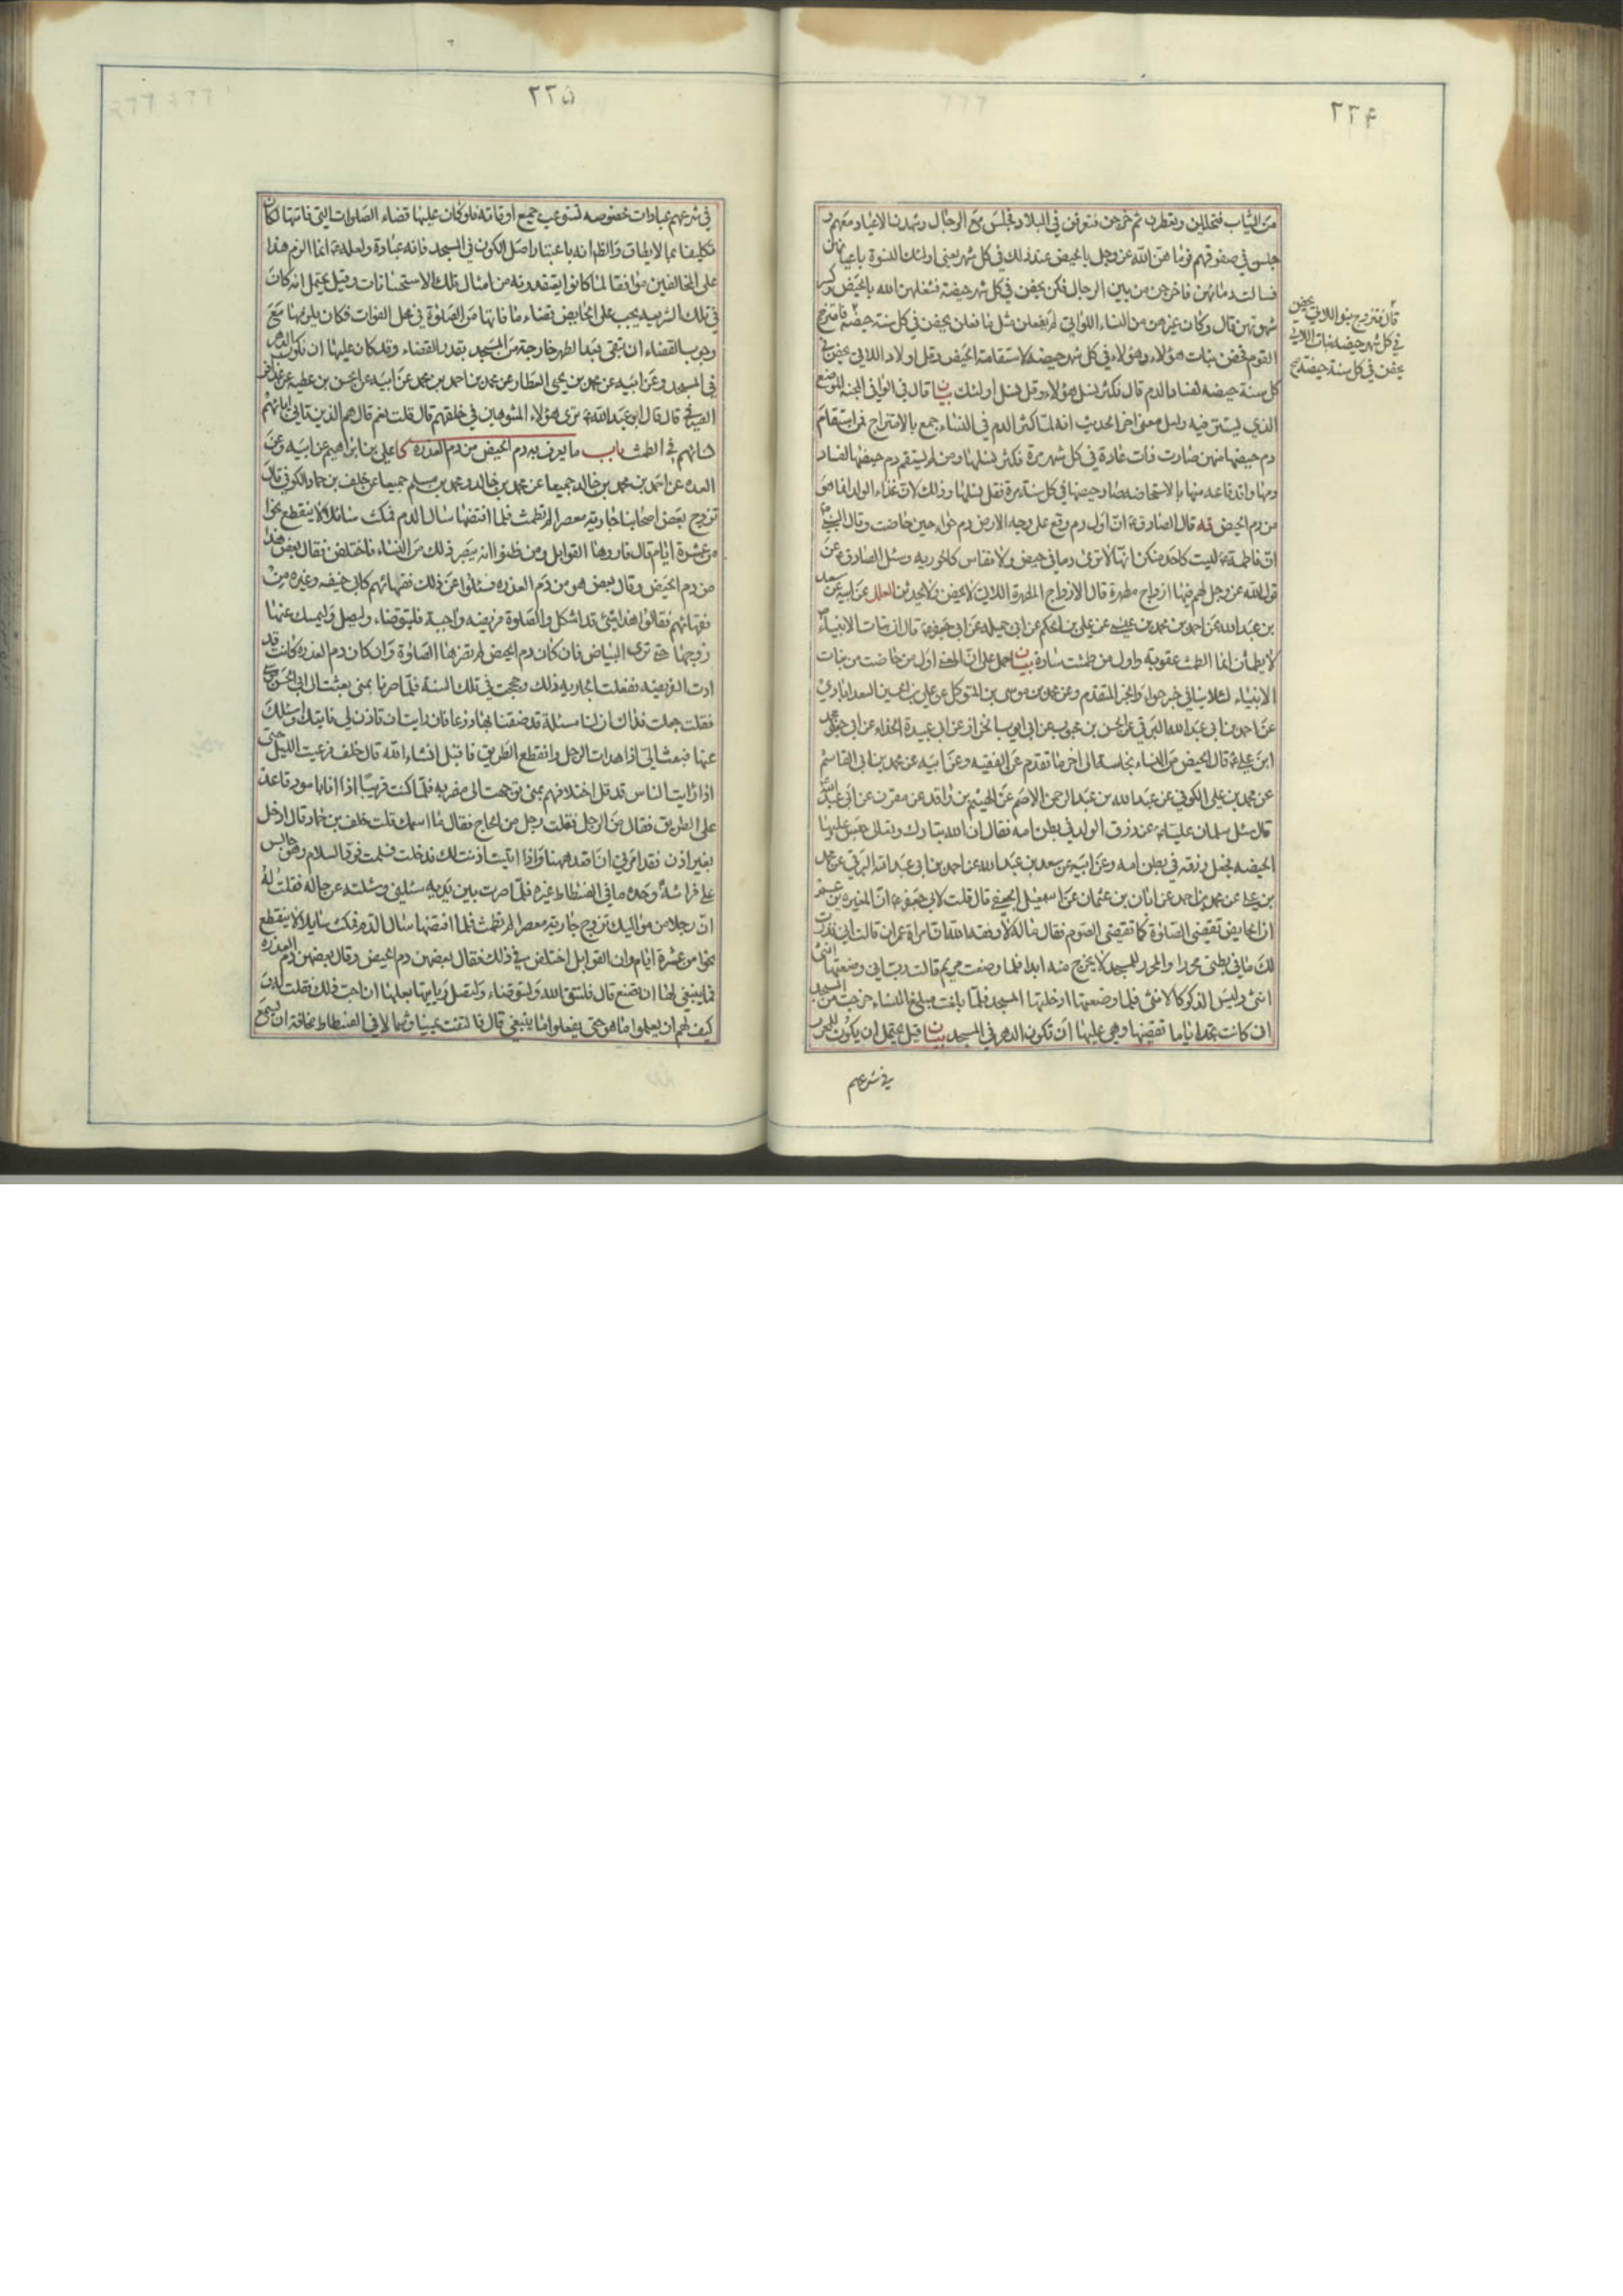 ٢٢۴
من الثياب فتحلين وتعطرن ثم خرجن فتفرقن في البلاد فجلسن مع الرجال وشهدن الاعياد معهم و
جلسن في صفوفهم فرماهن الله عز وجل بالحيض عند ذلك في كل شهر يعني اولئك النسوة باعيانهن
فسالت دمائهن فاخرجن من بين الرجال فكن يحضن في كل شهر حيضة فشغلهن الله بالحيض وكسر
شهوتهن قال وكان غيرهن من النساء اللواتي لم يفعلن مثل ما فعلن يحضن في كل سنة حيضة فامتزج
القوم فحضن بنات هؤلاء وهؤلاء في كل شهر حيضة لاستقامة الحيض وقل اولاد اللاتي يحضن في
كل سنة حيضة لفساد الدم قال فكثر نسل هؤلاء وقل نسل اولئك بيان قال في الوافي
الذي يستتر فيه ولعل معنى اخر الحديث انه لما كثر الدم في النساء جمع بالامتزاج فمن استقام
دم حيضها منهن صارت ذات عادة في كل شهر مرة فكثر نسلها ومن لم يستقم دم حيضها لفساد
دمها واندفاعه منها بالاستحاضه صار حيضها في كل سنة مرة فقل نسلها وذلك لان غذاء الولد انما هو
من دم الحيض قال الصادق ع ان اول دم وقع على وجه الارض دم حواء حين حاضت وقال
ان فاطمة ع ليست كاحد منكن انها لا ترى دما في حيض ولا نفاس كالحوريه وسئل الصادق ع عن
قول الله عز وجل لهم فيها ازواج مطهرة قال الازواج المطهرة اللاتي لا يحضن ولا يحدثن العلل عن ابيه عن سعد
بن عبد الله عن احمد بن محمد بن عيسى عن علي بن الحكم عن ابي جميله عن ابي جعفر ع قال ان بنات الانبياء
لا يطمثن انما الطمث عقوبة واول من طمثت سارة بيان حمل على ان المعنى اول من حاضت من بنات
الانبياء لئلا ينافي خبر حواء والخبر المتقدم وعن محمد بن موسى بن المتوكل عن علي بن الحسين السعد ابادي
عن احمد بن ابي عبد الله البرقي عن الحسن بن محبوب عن ابي ايوب عن ابي عبيدة الحذاء عن ابي جعفر محمد
ابن علي ع قال الحيض من النساء نجاسة الى اخر ما تقدم عن الفقيه وعن ابيه عن محمد بن ابي القاسم
عن محمد بن علي الكوفي عن عبد الله بن عبد الرحمن الاصم عن الهيثم بن واقد عن مقرن عن ابي عبد الله
قال سئل سلمان عليا ع عن رزق الولد في بطن امه فقال ان الله تبارك وتعالى حبس عليها
الحيضة فجعل رزقه في بطن امه وعن ابيه عن سعد بن عبد الله عن احمد بن ابي عبد الله البرقي عن محمد
بن علي عن محمد بن احمد عن ابان بن عثمان عن اسمعيل الجعفي قال قلت لابي جعفر ع ان المغيرة
ان الحايض تقضي الصلوة كما تقضي الصوم فقال ماله لا وفقه الله ان امراة عمران قالت اني نذرت
لك ما في بطني محررا والمحرر للمسجد لا يخرج منه ابدا فلما وضعت مريم قالت رب اني وضعتها انثى
انثى وليس الذكر كالانثى فلما وضعتها ادخلتها المسجد فلما بلغت مبلغ النساء خرجت من المسجد
ان كانت تجد اياما تقضيها وهي عليها ان تكون الدهر في المسجد بيان قيل يحتمل ان يكون للمحرر
في شرعهم
قال فتزوج بنو اللاتي يحضن
في كل شهر حيضه بنات اللاتي
يحضن في كل سنة حيضة
٢٢۵
في شرعهم عبادات مخصوصه تستوعب جميع اوقاته فلو كان عليها قضاء الصلوات التي فاتتها لكان
تكليفا بما لا يطاق والظ انه باعتبار اصل الكون في المسجد فانه عبادة ولعله ع انما الزم هذا
على المخالفين موافقا لما كانوا يعتقدونه من امثال تلك الاستحسانات وقيل يحتمل انه كان
في تلك الشريعه يجب على الحايض قضاء ما فاتها من الصلوة في محل الفوات فكان يلزمها مع
وجوب القضاء ان تبقى بعد الطهر خارجة من المسجد بقدر القضاء وقد كان عليها ان تكون الدهر
في المسجد وعن ابيه عن محمد بن يحيى العطار عن محمد بن احمد بن محمد عن ابيه عن الحسن بن عطيه عن عذافر
الصيرفي قال قال ابو عبد الله ع ترى هؤلاء المشوهين في خلقهم قال قلت نعم قال هم الذين ياتي ابائهم
نسائهم في الطمث باب ما يعرف به دم الحيض من دم العذره كا علي بن ابراهيم عن ابيه وعن
العده عن احمد بن محمد بن خالد جميعا عن محمد بن خالد ومحمد بن مسلم جميعا عن خلف بن حماد الكوفي قال
تزوج بعض اصحابنا جارية معصرا لم تطمث فلما افتضها سال الدم فمكث سائلا لا ينقطع نحوا
من عشرة ايام قال فاروها القوابل ومن ظنوا انه يبصر ذلك من النساء فاختلفن فقال بعض هذا
من دم الحيض وقال بعض هو من دم العذره فسئلوا عن ذلك فقهائهم كابي حنيفه وغيره من
فقهائهم فقالوا هذا شئ قد اشكل والصلوة فريضه واجبة فليتوضاء وليصل وليمسك عنها
زوجها حتى ترى البياض فان كان دم الحيض لم تضرها الصلوة وان كان دم العذره كانت قد
ادت الفريضه ففعلت الجاريه ذلك وحججت في تلك السنة فلما صرنا بمنى بعثت الى ابي الحسن موسى
فقلت جعلت فداك ان لنا مسئلة قد ضقنا بها ذرعا فان رايت ان تاذن لي فاتيك واسئلك
عنها فبعث الي اذا هدات الرجل وانقطع الطريق فاقبل انشاء الله قال خلف فرعيت الليل حتى
اذا رايت الناس قد قل اختلافهم بمنى توجهت الى مضربه فلما كنت قريبا اذا انا باسود قاعد
على الطريق فقال من الرجل فقلت رجل من الحاج فقال ما اسمك قلت خلف بن حماد قال ادخل
بغير اذن فقد امرني ان اقعد ههنا واذا اتيت اذنت لك فدخلت فسلمت فرد السلام وهو جالس
على فراشه وحده ما في الفسطاط غيره فلما صرت بين يديه سئلني وسئلته عن حاله فقلت له
ان رجلا من مواليك تزوج جارية معصرا لم تطمث فلما افتضها سال الدم فمكث سايلا لا ينقطع
نحوا من عشرة ايام وان القوابل اختلفن في ذلك فقال بعضهن دم الحيض وقال بعضهن دم العذره
فما ينبغي لها ان تصنع قال فلتتق الله
كيف لهم ان يعلموا ما هو حتى يفعلوا ما ينبغي قال فالتفت يمينا وشمالا في الفسطاط مخافة ان يسمع